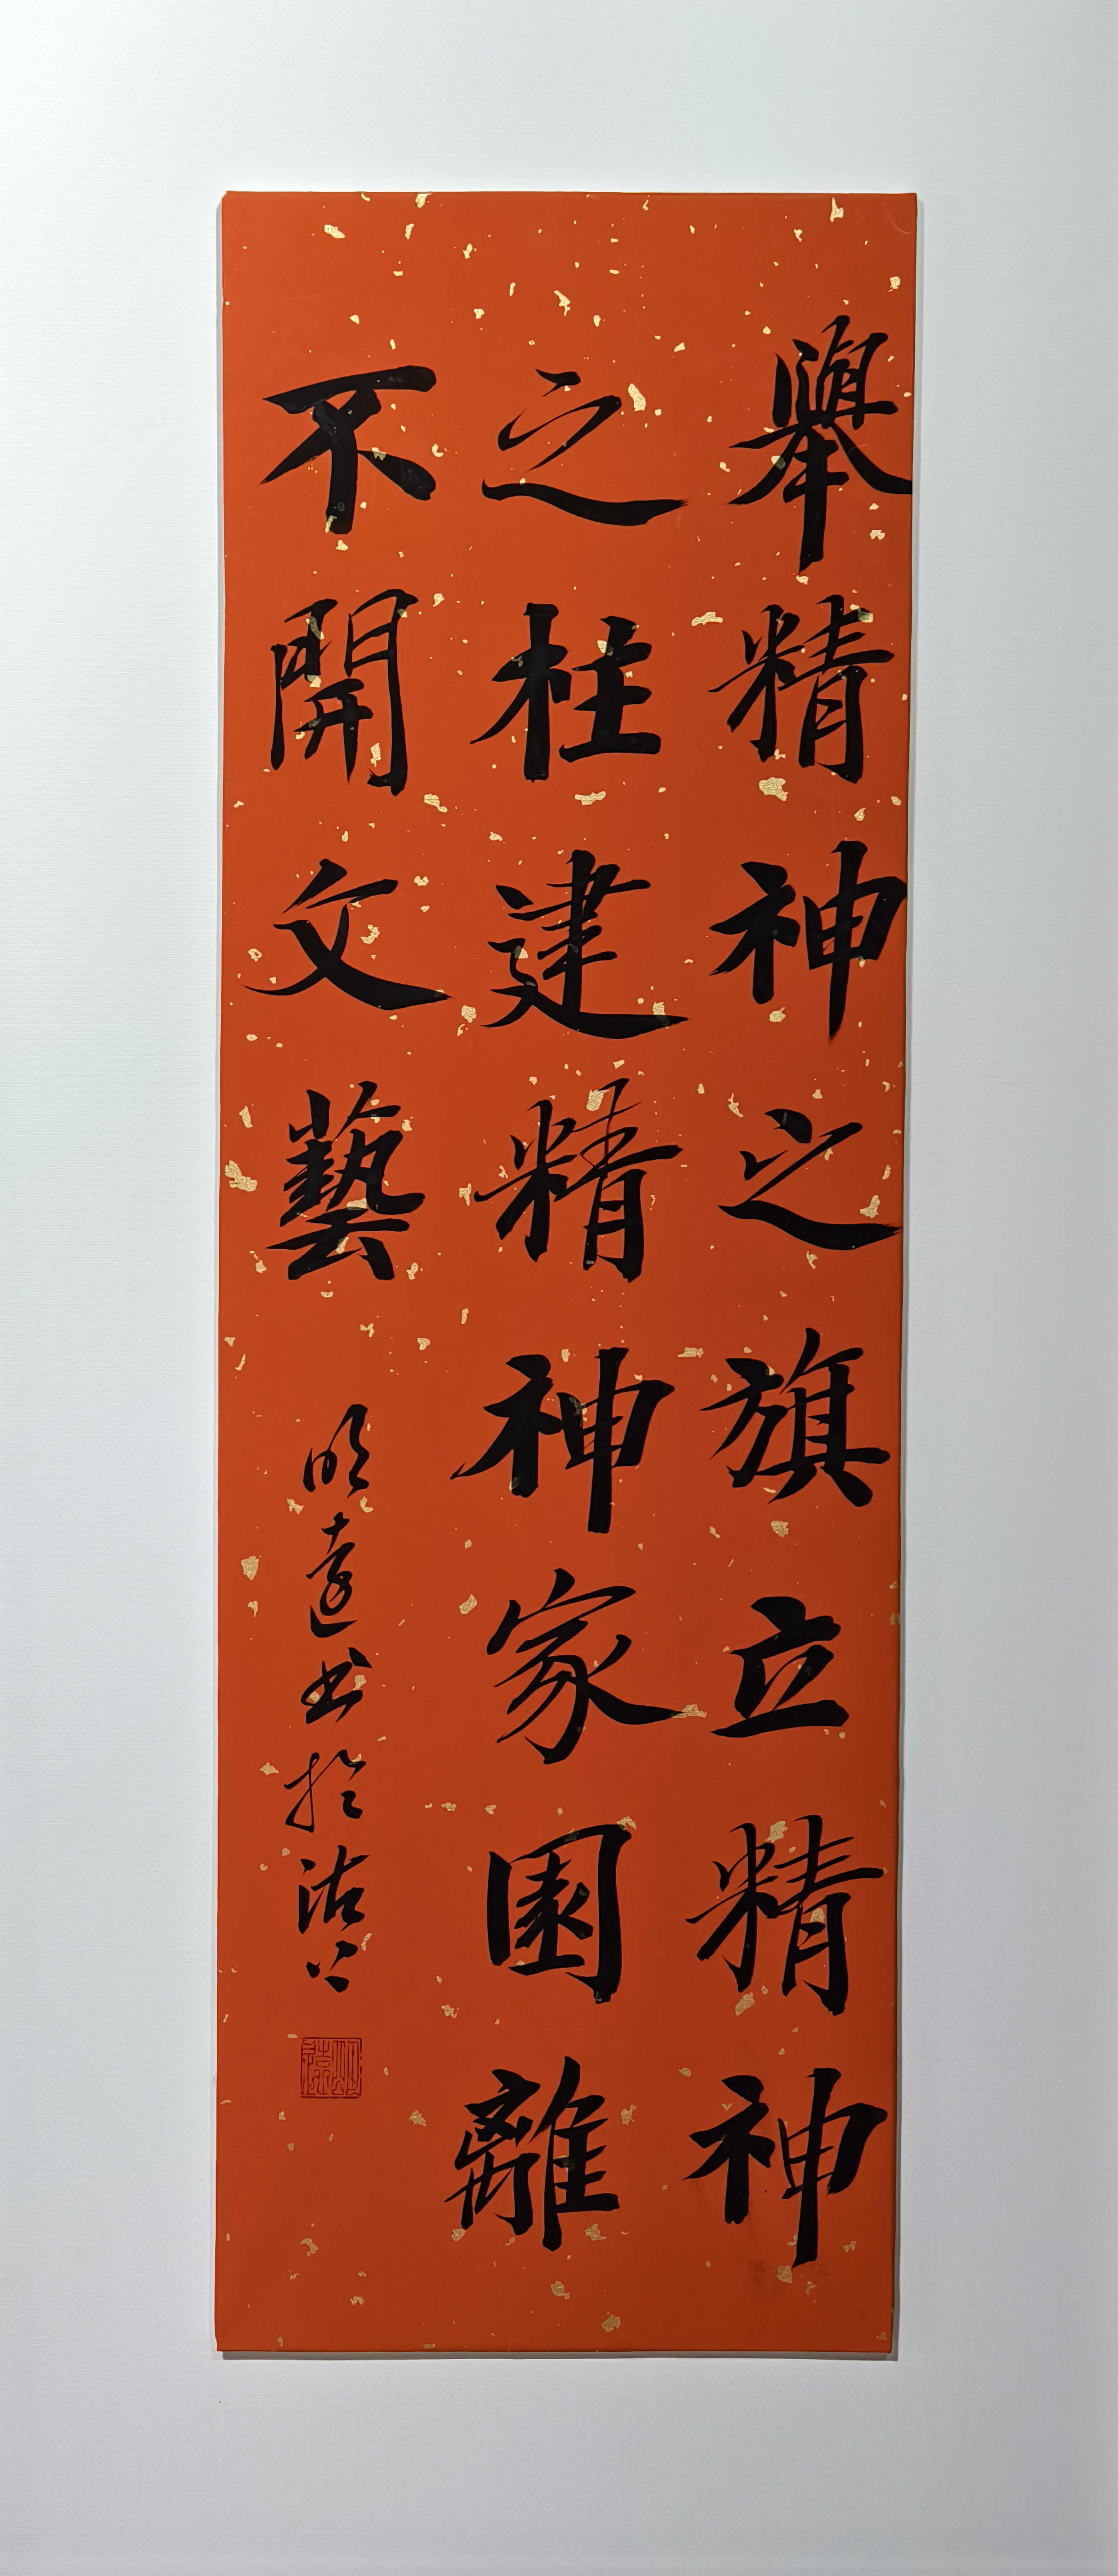 舉精神之旗立精神
之柱建精神家園離
不開文藝
明遠書於沽上
明遠